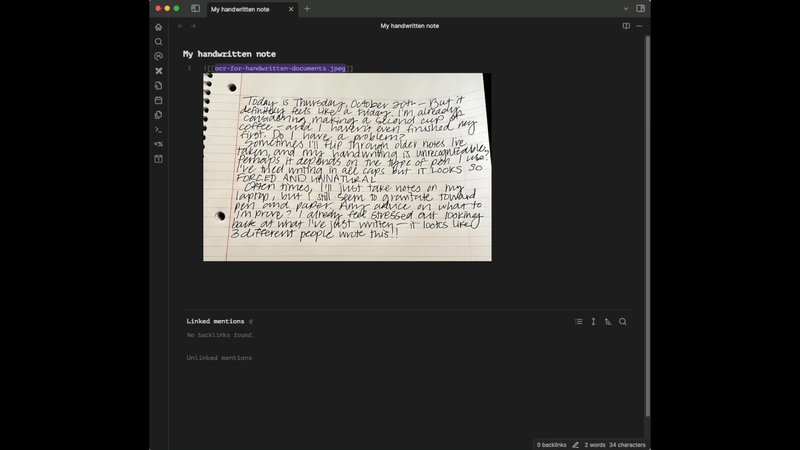 My handwritten note
My handwritten note
My handwritten note
1 ![[ocr-for-handwritten-documents.jpeg]]
Today is Thursday, October 20th - But it
definitely feels like a Friday. I'm already
considering making a second cup of
coffee - and I haven't even finished my
first. Do I have a problem?
Sometimes I'll flip through older notes I've
taken, and my handwriting is unrecognizable.
Perhaps it depends on the type of pen I use!
I've tried writing in all caps but IT LOOKS SO
FORCED AND UNNATURAL
Often times, I'll just take notes on my
laptop, but I still seem to gravitate toward
pen and paper. Any advice on what to
improve? I already feel stressed out looking
back at what I've just written - it looks like
3 different people wrote this!!
Linked mentions 0
No backlinks found.
Unlinked mentions
0 backlinks 2 words 34 characters